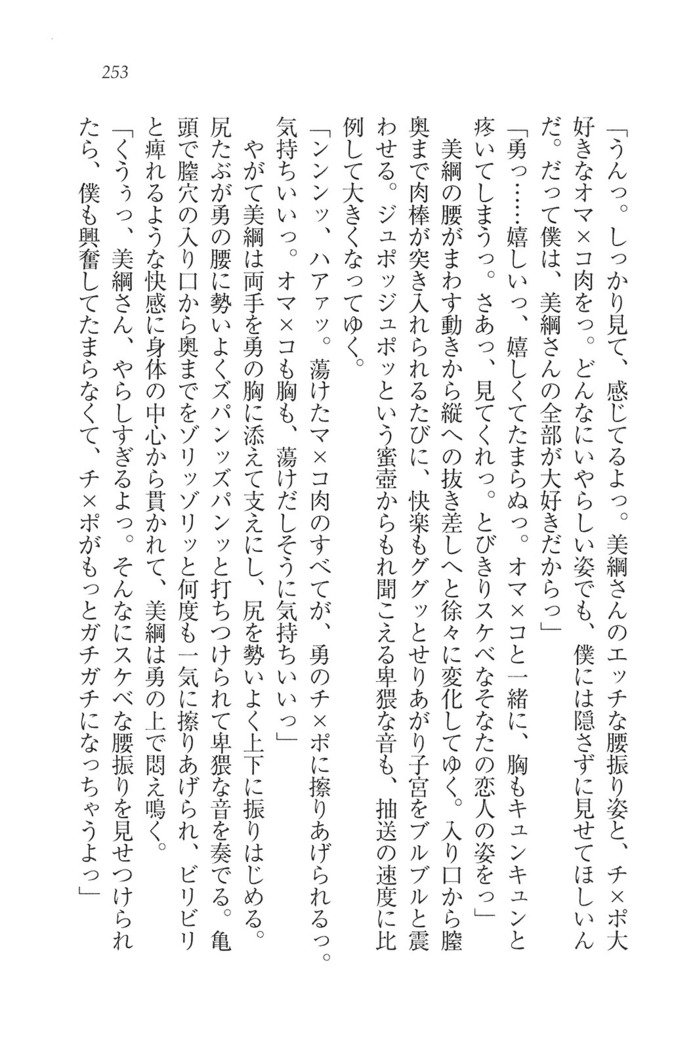 253
「うんっ。しっかり見て、感じてるよっ。美綱さんのエッチな腰振り姿と、チ×ポ大
好きなオマ×コ肉をっ。どんなにいやらしい姿でも、僕には隠さずに見せてほしいん
だ。だって僕は、美綱さんの全部が大好きだからっ」
「勇っ……嬉しいっ、嬉しくてたまらぬっ。オマ×コと一緒に、胸もキュンキュンと
疼いてしまうっ。さあっ、見てくれっ。とびきりスケベなそなたの恋人の姿をっ」
美綱の腰がまわす動きから縦への抜き差しへと徐々に変化してゆく。入り口から膣
奥まで肉棒が突き入れられるたびに、快楽もググッとせりあがり子宮をブルブルと震
わせる。ジュポッジュポッという蜜壺からもれ聞こえる卑猥な音も、抽送の速度に比
例して大きくなってゆく。
「ンンンッ、ハアァッ。蕩けたマ×コ肉のすべてが、勇のチ×ポに擦りあげられるっ。
気持ちいいっ。オマ×コも胸も、蕩けだしそうに気持ちいいっ」
やがて美綱は両手を勇の胸に添えて支えにし、尻を勢いよく上下に振りはじめる。
尻たぶが勇の腰に勢いよくズパンッズパンッと打ちつけられて卑猥な音を奏でる。亀
頭で膣穴の入り口から奥までをゾリッゾリッと何度も一気に擦りあげられ、ビリビリ
と痺れるような快感に身体の中心から貫かれて、美綱は勇の上で悶え鳴く。
「くうぅっ、美綱さん、やらしすぎるよっ。そんなにスケベな腰振りを見せつけられ
たら、僕も興奮してたまらなくて、チ×ポがもっとガチガチになっちゃうよっ」